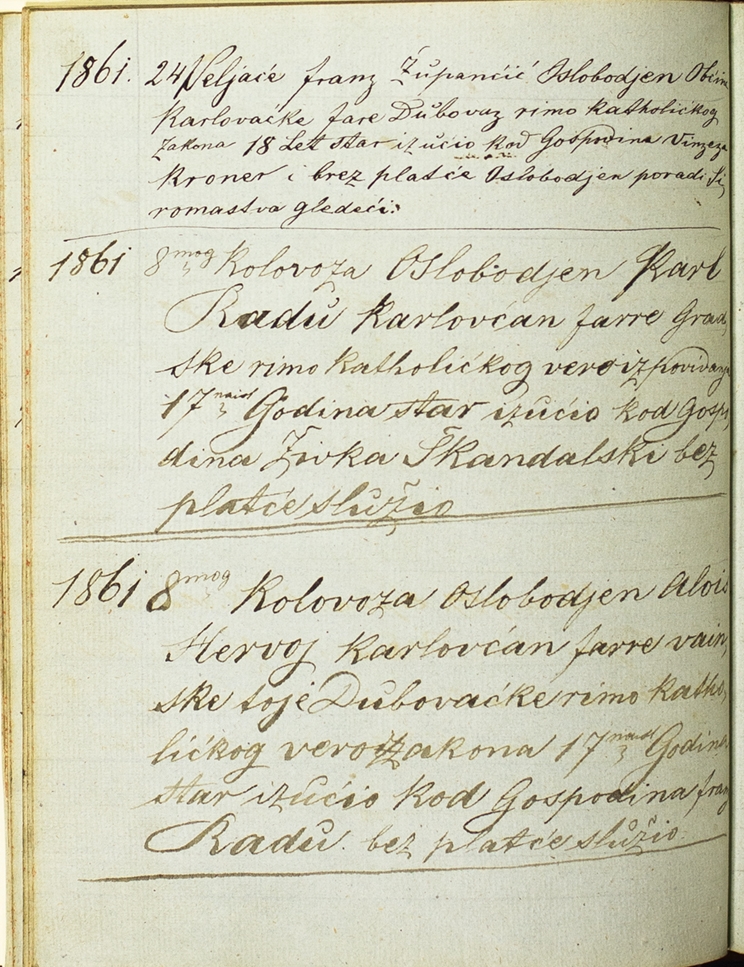 1861. 24 Veljače franz Župančić Oslobodjen Obćine
Karlovačke fare Dubovaz rimo katholičkog
zakona 18 Let star izučio kod Gospodina Vinzeza
Kroner i brez platće Oslobodjen poradi Si,
romastva gledeći:
1861 8mog Kolovoza Oslobodjen Karl
Radū Karlovćan farre Grad,
ske rimo katholićkog vero izpovivanja
17 Godina star izućio kod Gospo,
dina Živka Škandalski bez
platće slūžio
1861 8mog Kolovoza Oslobodjen Alois
Hervoj Karlovćan farre vain,
ske toje Dubovaćke rimo katho,
lićkog vero zakona 17 Godina
star izućio kod Gospodina franz
Radū. bez platće slūžio.